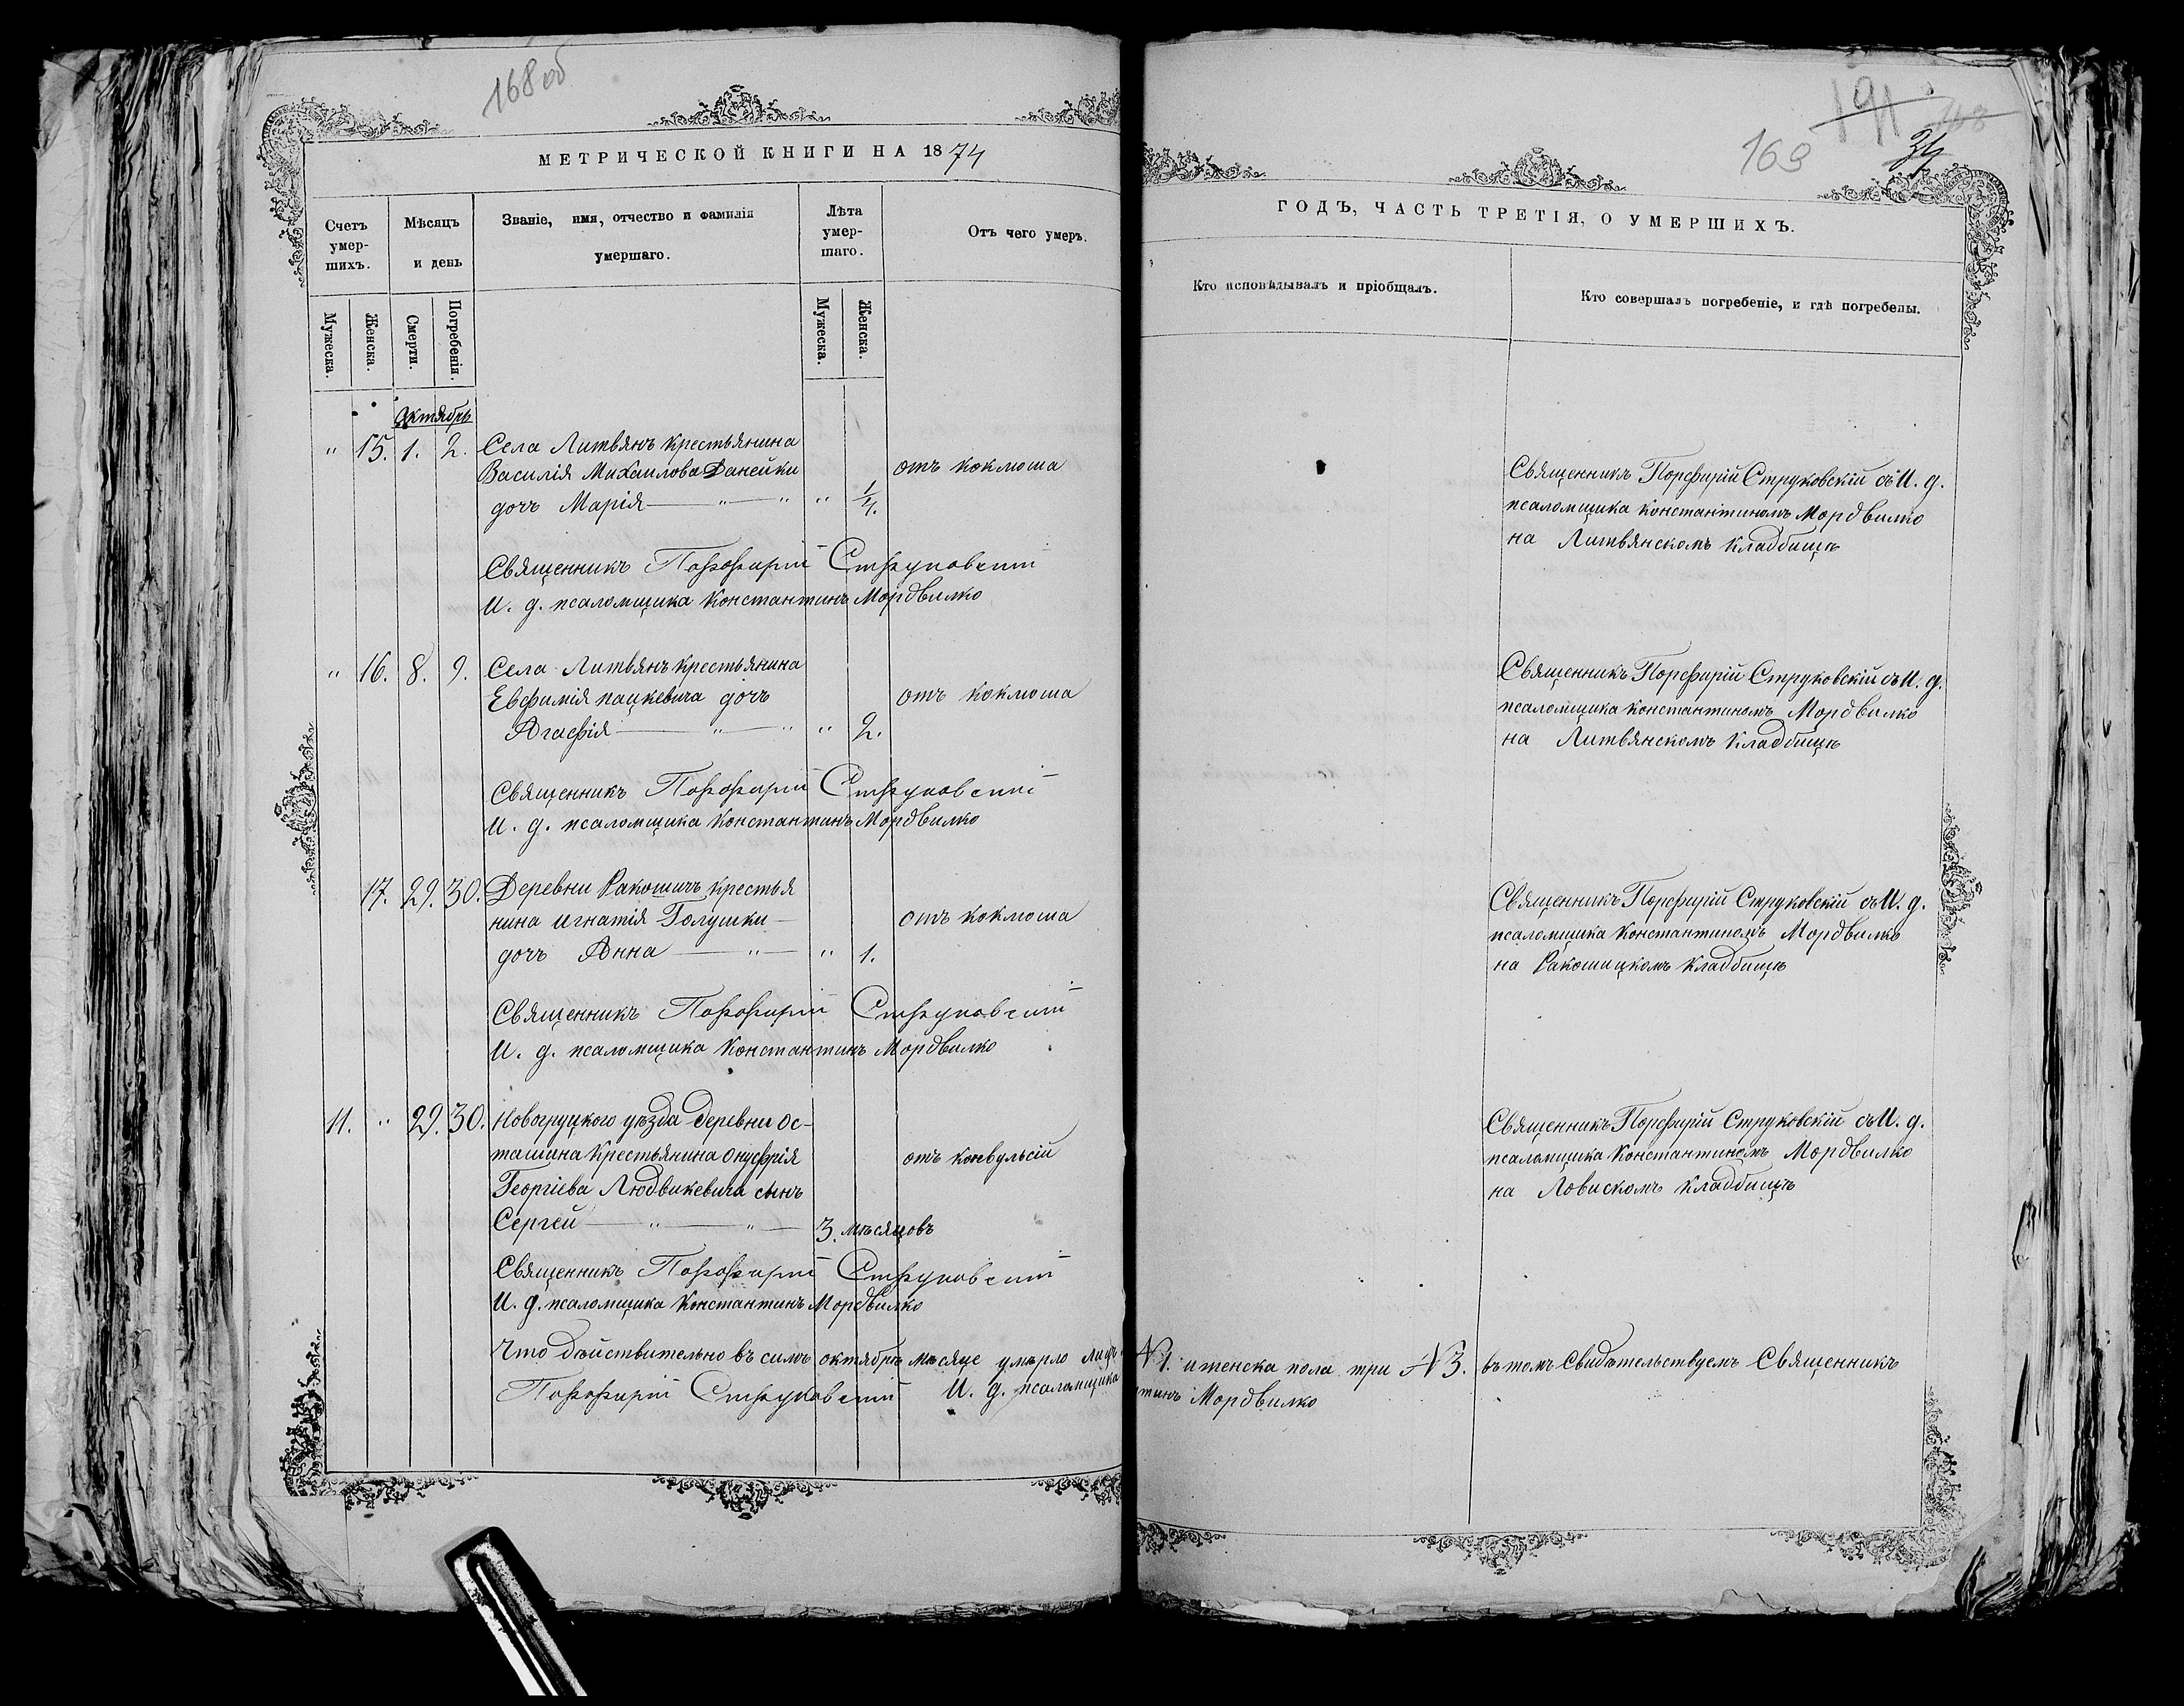 168 об
МЕТРИЧЕСКОЙ КНИГИ НА 1874
Счетъ умер-шихъ.
Мѣсяцъ и день
Званіе, имя, отчество и фамилія умершаго.
Лѣта умер-шаго.
Отъ чего умеръ.
Мужеска.
Женска.
Смерти.
Погребенія.
Мужеска.
Женска.
Октябрь
" 15. 1. 2. Села Литвянъ крестьянина
Василія Михаилова Данейки отъ коклюша
дочъ Марія — " — " " 1/4.
Священникъ Порфирій Струковскій
И. д. псаломщика Константинъ Мордвилко
" 16. 8. 9. Села Литвянъ крестьянина
Евфимія Пацкевича дочъ отъ коклюша
Агафія — " — " " 2.
Священникъ Порфирій Струковскій
И. д. псаломщика Константинъ Мордвилко
17. 29. 30. Деревни Ракошичъ крестья
нина Игнатія Голушки — отъ коклюша
дочъ Анна — " — " 1.
Священникъ Порфирій Струковскій
И. д. псаломщика Константинъ Мордвилко
11. " 29. 30. Новогруцкого уѣзда деревни Ос-
ташина крестьянина Онуфрія отъ конвульсій
Георгіева Людвикевича сынъ
Сергей — " — " — 3. мѣсяцовъ
Священникъ Порфирій Струковскій
И. д. псаломщика Константинъ Мордвилко
Что дѣйствительно въ семъ октябрѣ мѣсяце умѣрло
Порфирій Струковскій И. д. псаломщика
191
168
169
34
ГОДЪ, ЧАСТЬ ТРЕТІЯ, О УМЕРШИХЪ.
Кто исповѣдывалъ и пріобщалъ.
Кто совершалъ погребеніе, и гдѣ погребены.
Священникъ Порфирій Струковскій съ И. д.
псаломщика Константиномъ Мордвилко
на Литвянскомъ кладбищѣ
Священникъ Порфирій Струковскій съ И. д.
псаломщика Константиномъ Мордвилко
на Литвянскомъ кладбищѣ
Священникъ Порфирій Струковскій съ И. д.
псаломщика Константиномъ Мордвилко
на Ракошицкомъ кладбищѣ
Священникъ Порфирій Струковскій съ И. д.
псаломщика Константиномъ Мордвилко
на Ловискомъ кладбищѣ
№ 1. и женска пола три № 3. въ томъ свидѣтельствуемъ Священникъ
тинъ Мордвилко